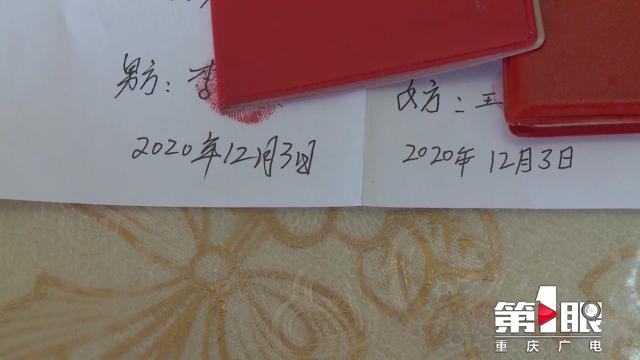 男方：李
女方：王
2020年12月3日
2020年12月3日
第1眼
重庆广电